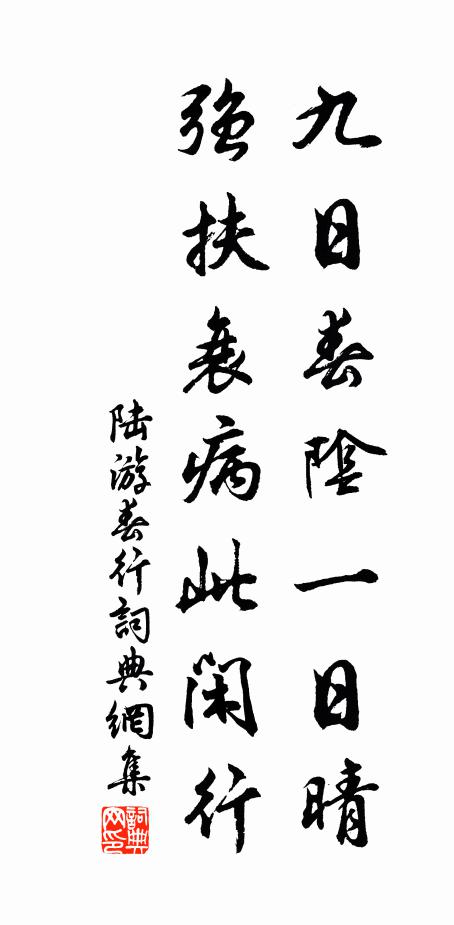 九日春陰一日晴
強扶衰病此閑行
陸游春行詞典網集
詞典網印